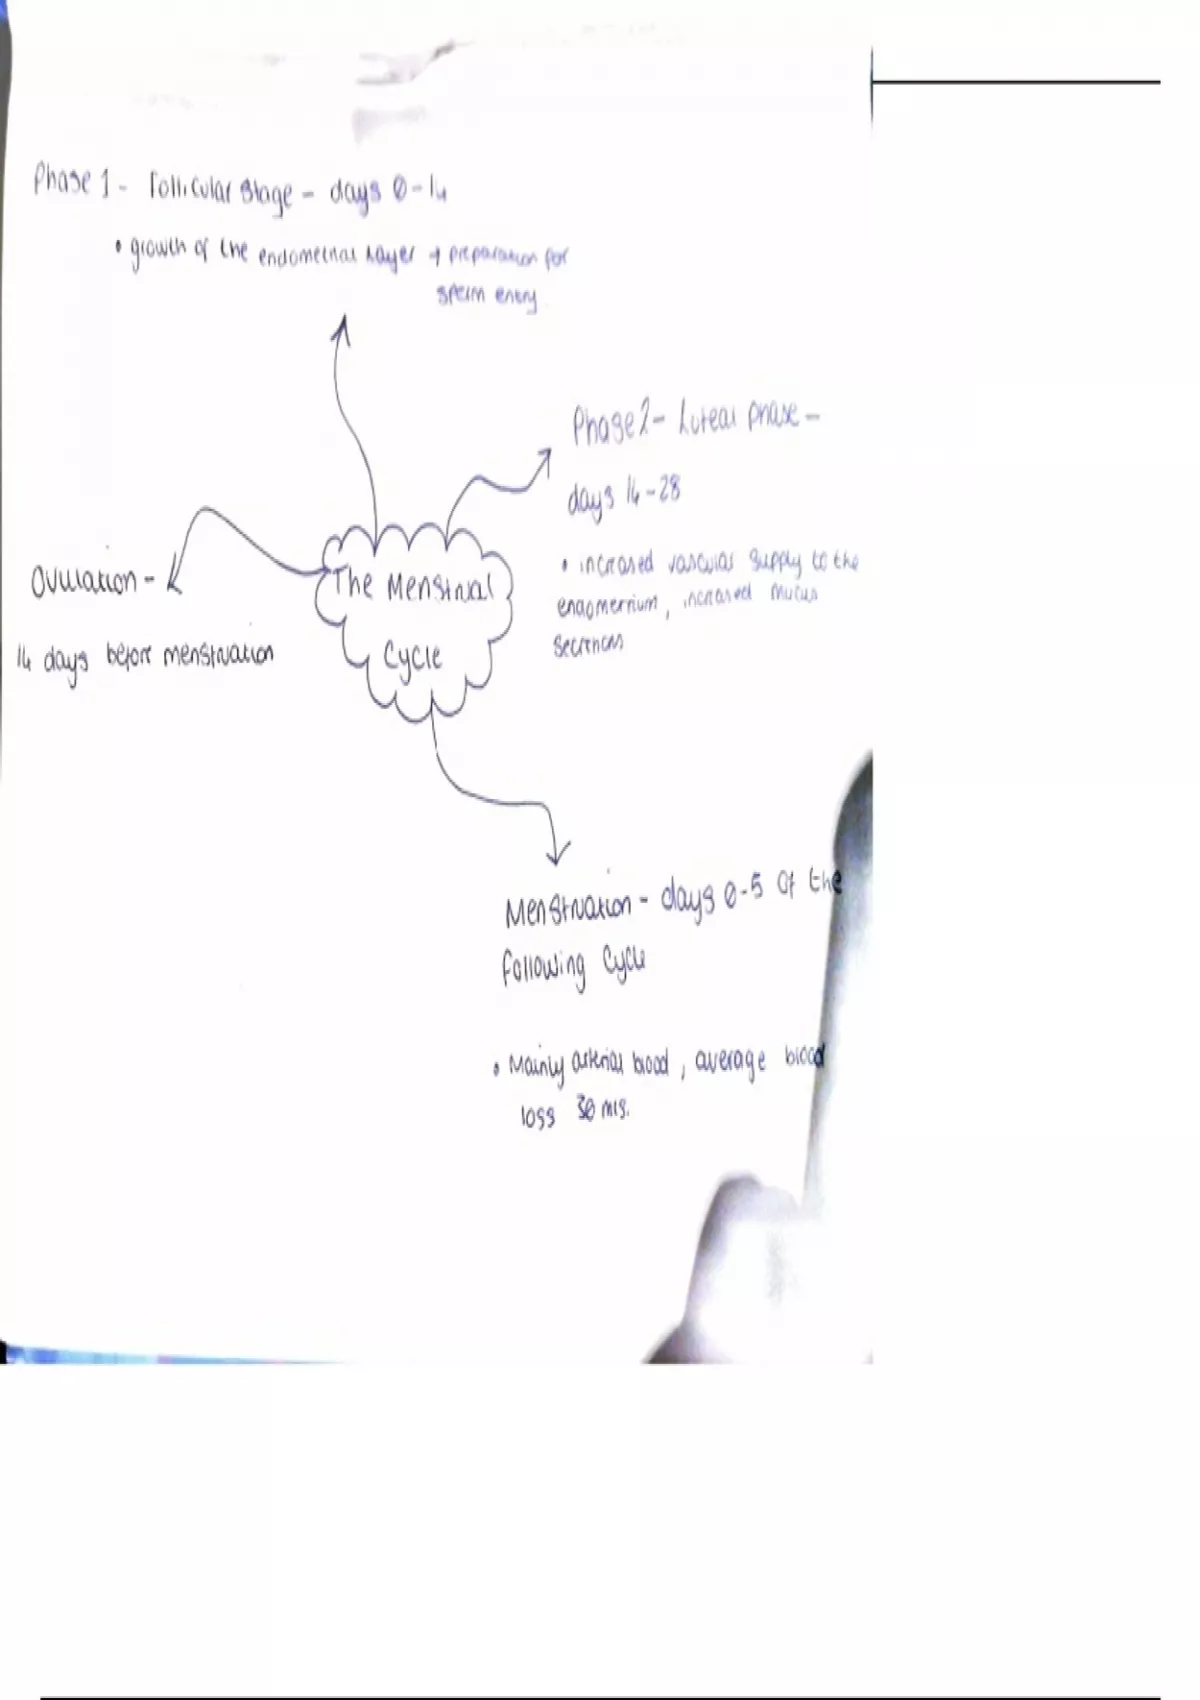 Phase 1 - Follicular Stage - days 0-14
• growth of the endometrial layer → preparation for
sperm entry
Phase 2 - Luteal phase -
days 14-28
• increased vascular supply to the
endometrium, increased mucus
secretions
Ovulation -
14 days before menstruation
The Menstrual
Cycle
Menstruation - days 0-5 of the
following cycle
• Mainly arterial blood, average blood
loss 30 mls.